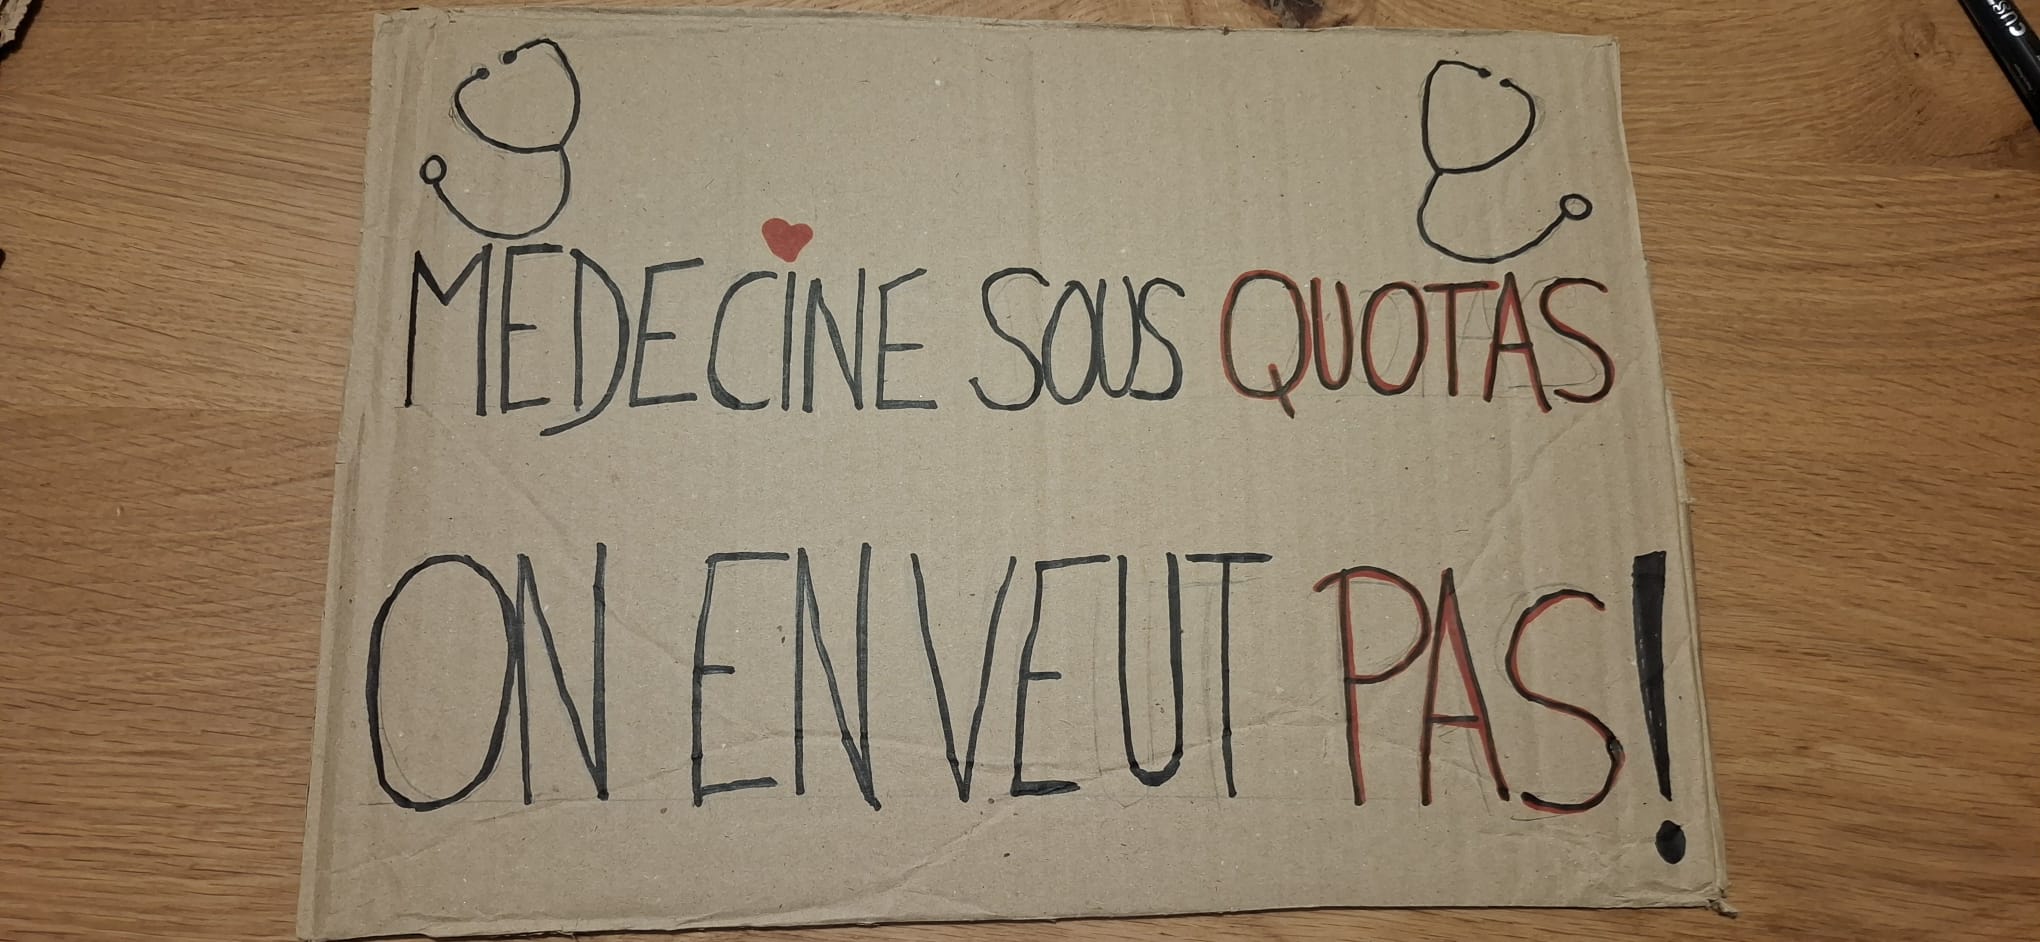 MEDECINE SOUS QUOTAS
ON EN VEUT PAS!